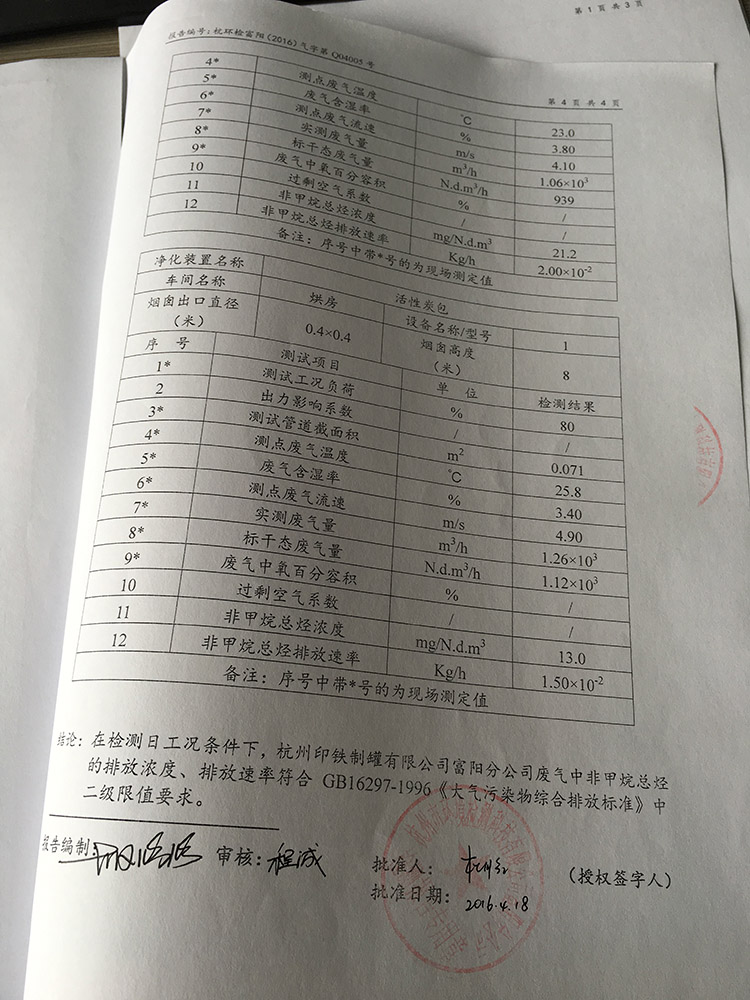 第 1 页 共 3 页
报告编号：杭环检富阳（2016）气字第 Q04005 号
第 4 页 共 4 页
4* 测点废气温度 ℃ 23.0
5* 废气含湿率 % 3.80
6* 测点废气流速 m/s 4.10
7* 实测废气量 m³/h 1.06×10³
8* 标干态废气量 N.d.m³/h 939
9* 废气中氧百分容积 % /
10 过剩空气系数 / /
11 非甲烷总烃浓度 mg/N.d.m³ 21.2
12 非甲烷总烃排放速率 Kg/h 2.00×10⁻²
备注：序号中带*号的为现场测定值
净化装置名称 活性炭包
车间名称 烘房 设备名称/型号 1
烟囱出口直径（米） 0.4×0.4 烟囱高度（米） 8
序 号 测试项目 单 位 检测结果
1* 测试工况负荷 % 80
2 出力影响系数 / /
3* 测试管道截面积 m² 0.071
4* 测点废气温度 ℃ 25.8
5* 废气含湿率 % 3.40
6* 测点废气流速 m/s 4.90
7* 实测废气量 m³/h 1.26×10³
8* 标干态废气量 N.d.m³/h 1.12×10³
9* 废气中氧百分容积 % /
10 过剩空气系数 /
11 非甲烷总烃浓度 mg/N.d.m³ 13.0
12 非甲烷总烃排放速率 Kg/h 1.50×10⁻²
备注：序号中带*号的为现场测定值
结论：在检测日工况条件下，杭州印铁制罐有限公司富阳分公司废气中非甲烷总烃
的排放浓度、排放速率符合 GB16297-1996《大气污染物综合排放标准》中
二级限值要求。
报告编制： 审核：程诚 批准人： （授权签字人）
批准日期：2016.4.18